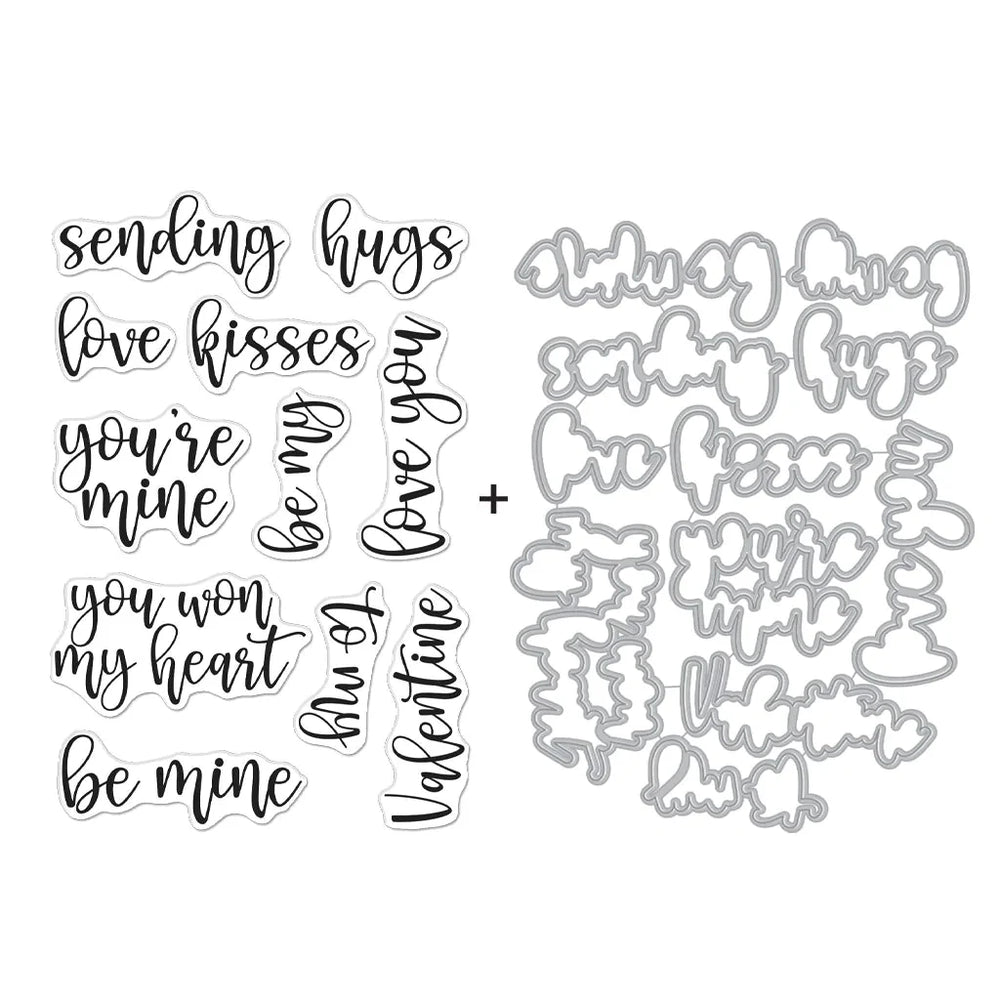 sending
hugs
love
kisses
love you
you're
mine
be my
you won
my heart
to my
Valentine
be mine
+